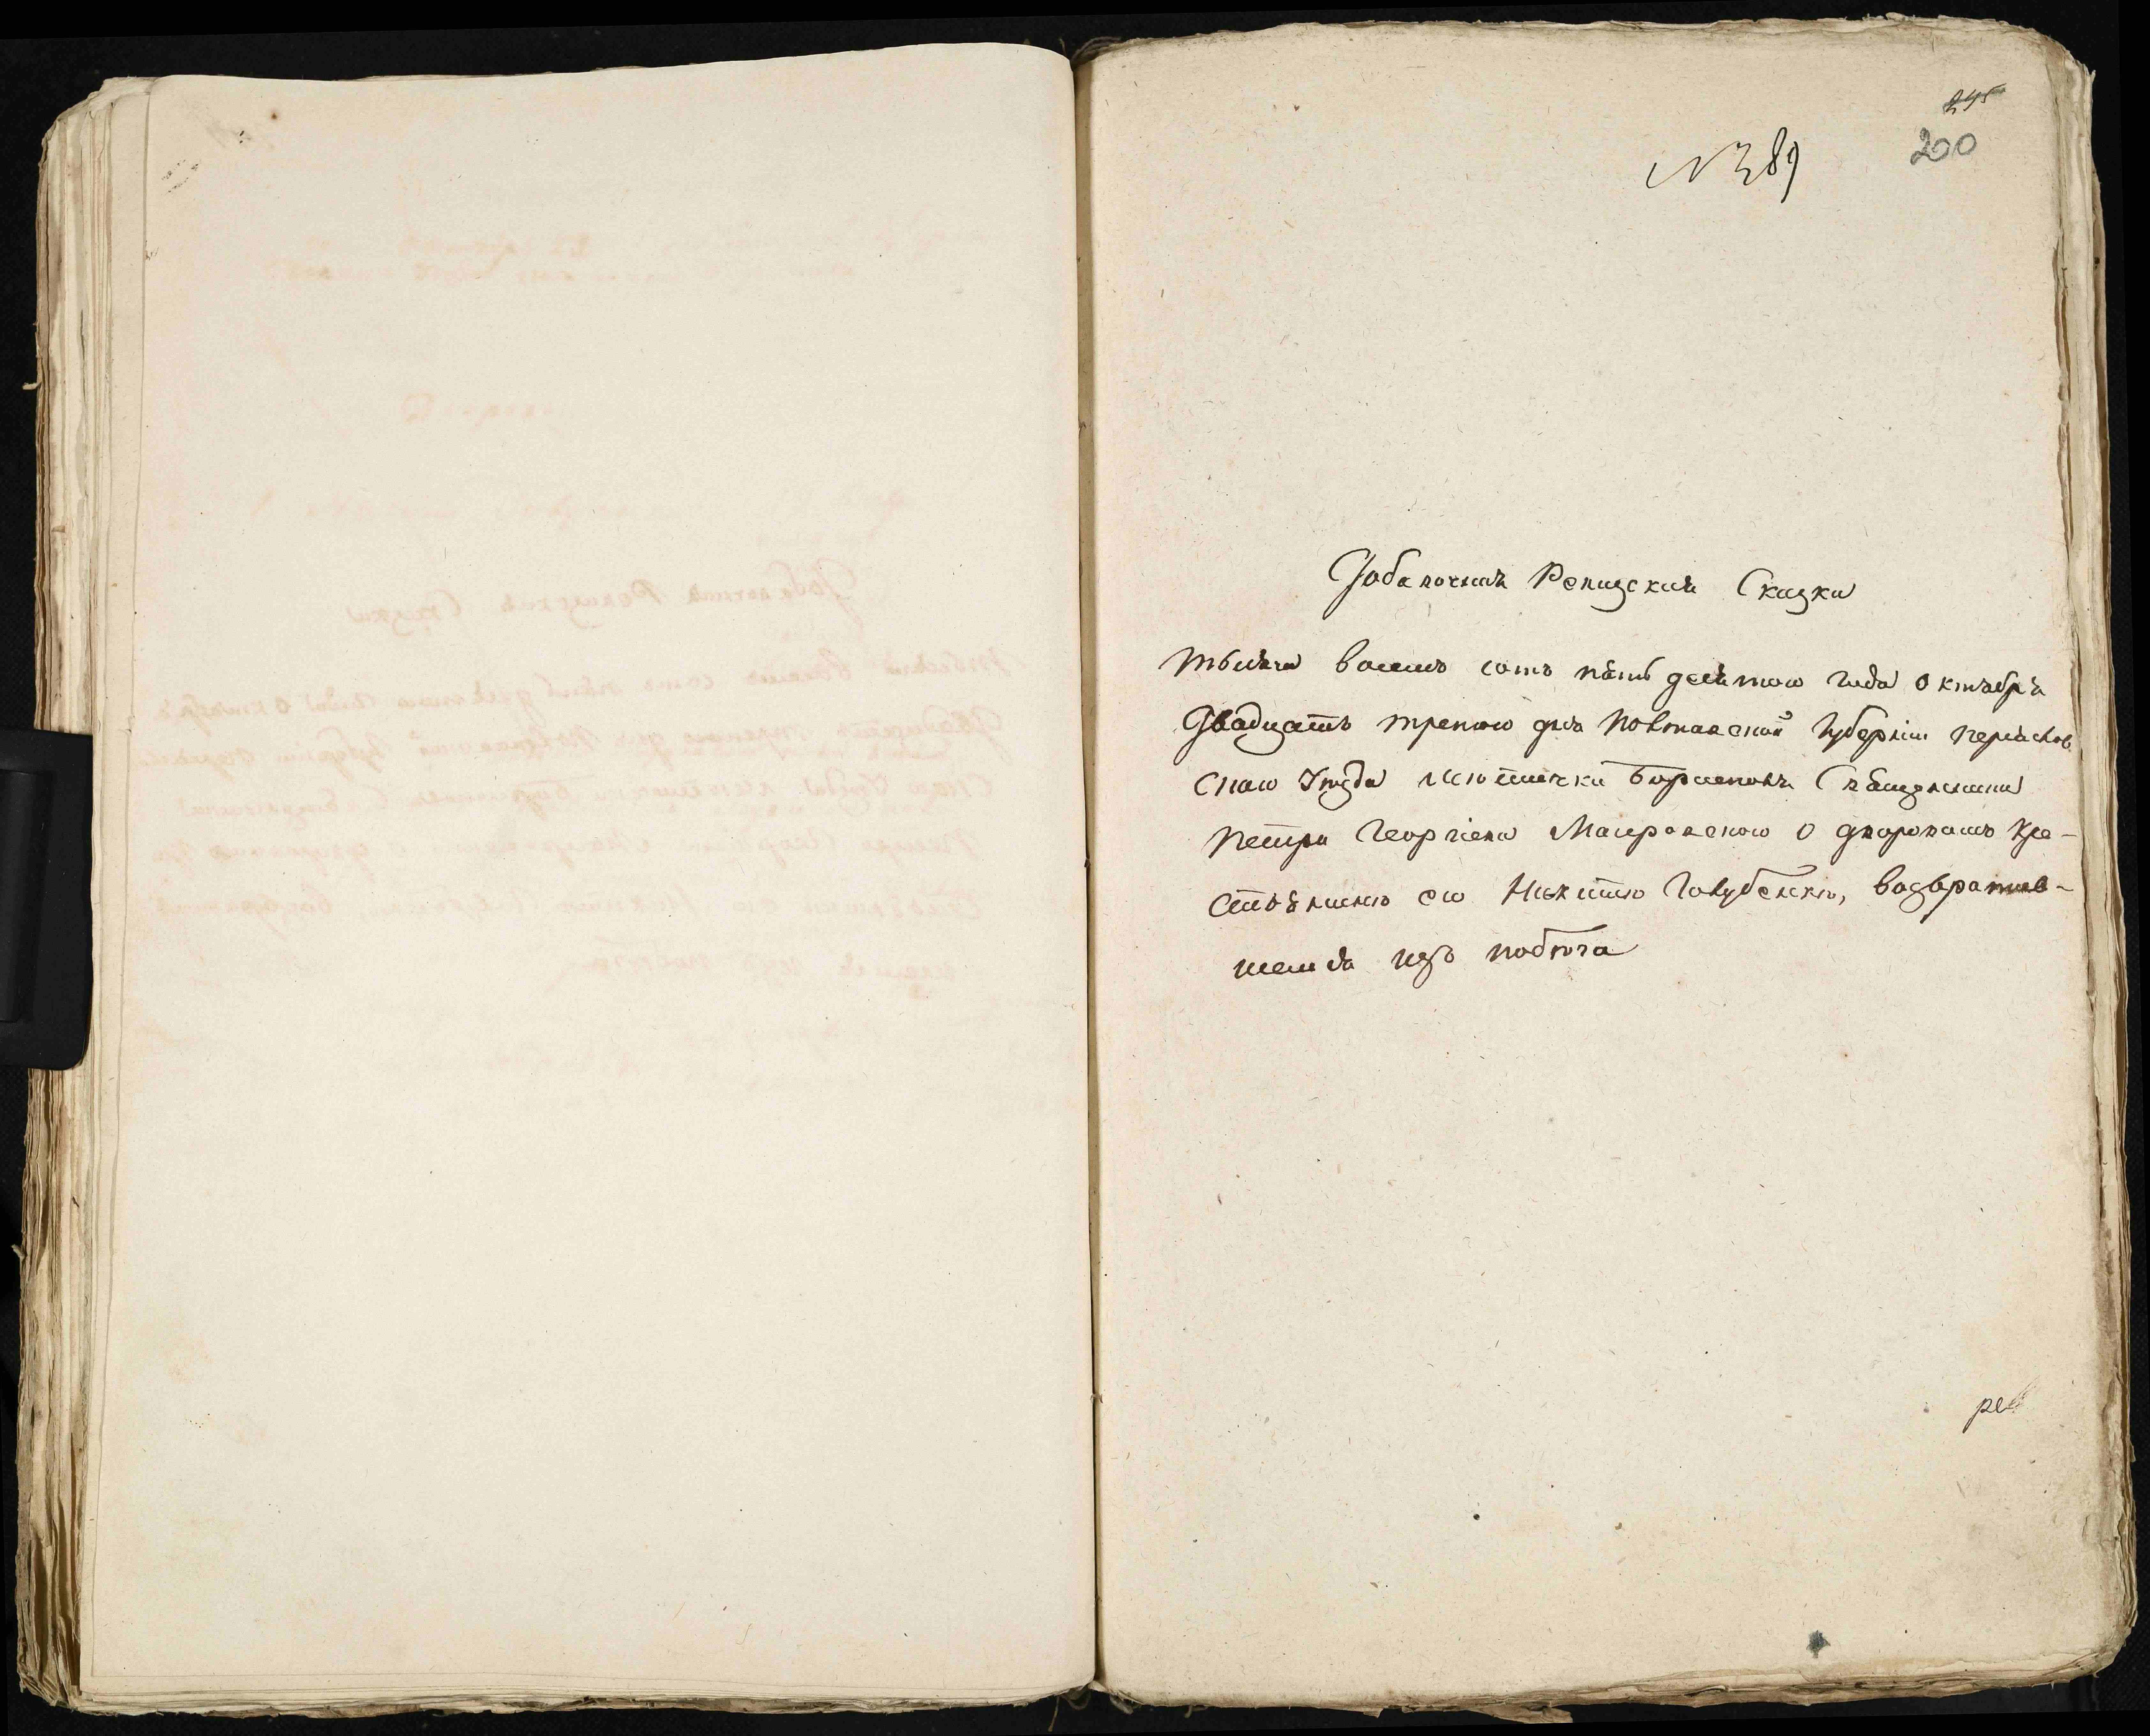 245
200
№ 389
Добавочная Ревизская Сказка
тысяча восемь сотъ пять десятого года Октября
Двадцать третого дня Полтавской Губерніи Переяслов
скаго Уезда местечка Борисполя Священника
Петра Георгіева о дворовомъ кре-
стьянину его Никитою Голубенко, возвратив-
шемся изъ побега
рев